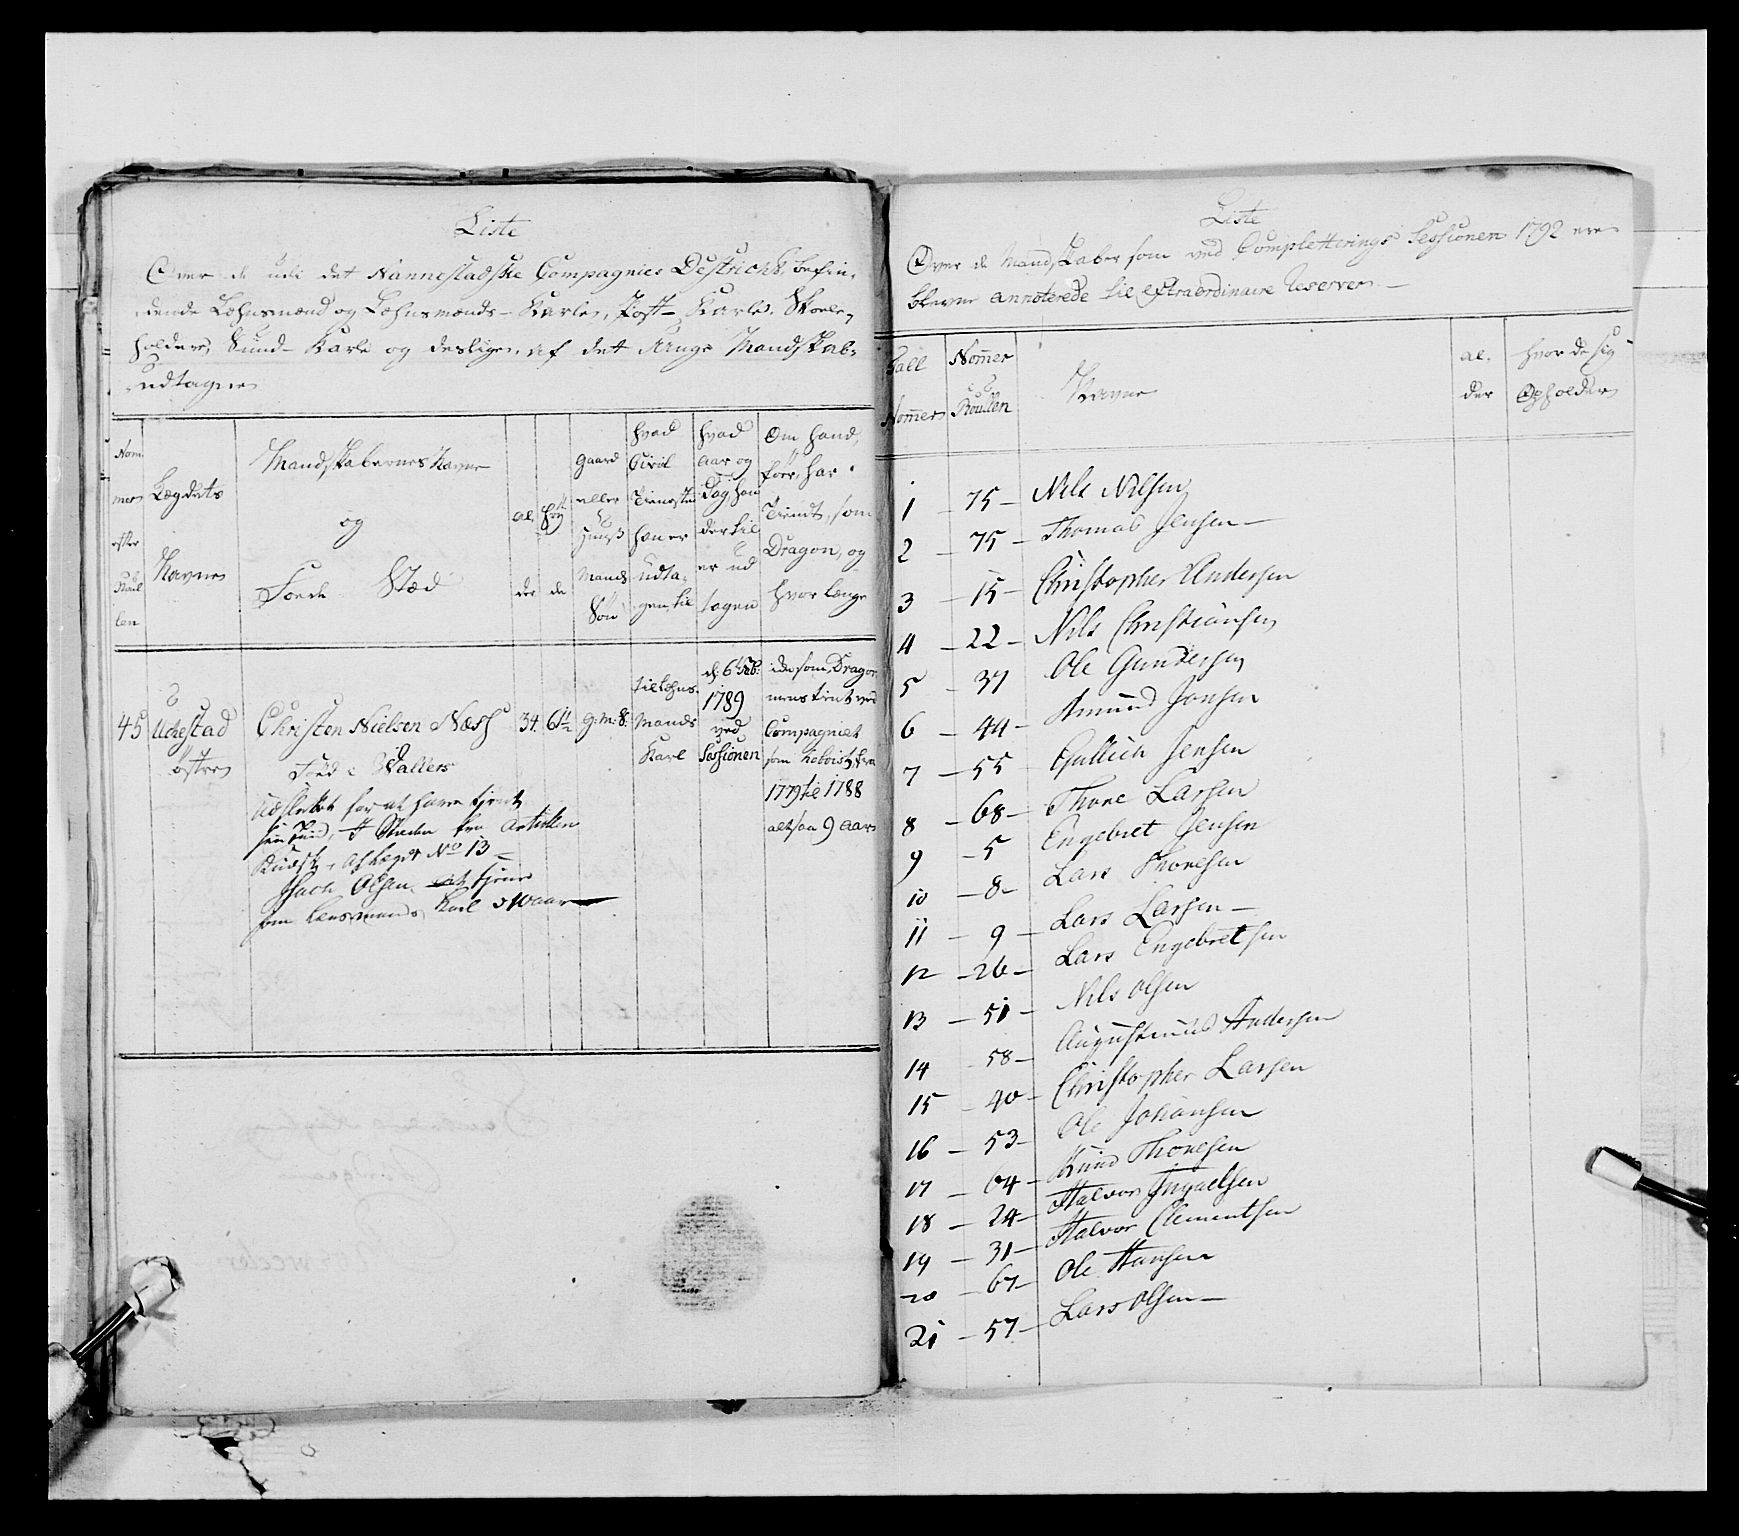 Liste
Over de udi det Nannestadske Compagnies Destricht, befin-
dende Lehnsmænd og Lehnsmænds-Karle, Post-Karle, Skoele-
holdere, Sund-Karle og deslige, af det unge Mandskab,
udtagne
Nom
mer
efter
Roul
len
Lægdets
Navne
Mandskabernes Navne
og
Føede Stæd
al-
der
høy
de
Gaard
eller
Huuß
Mands
Søn
hvad
Civil
Tieneste
han er
udta-
gen til
hvad
aar og
Dag han
der til
er ud
tagen
Om hand
før, har
Tient, som
Dragon, og
hvor længe
45
østre
Christen Nielsen Næss
Født i Walders
34
g: m: S:
til Lehns-
Mands
Karl
d: 6t Feb:
1789
ved
Sessionen
icke som Dragon
men tient ved
Compagniet
som fra
1779 til 1788
altsaa 9 aar
Udslettet for at have tient
sin Tiid, I Steden
af Legd No 13
Olsen at tiene
som Lensmands Karl i 10 aar
Liste
Over de Mandskaber som ved Completterings Sessionen 1792 ere
blevne annoterede til Extraordinaire Reserven
Tall
Nommer
Nommer
i
Roullen
Navne
al-
der
hvor de sig
Opholder
1 - 75 - Nils Nilsen
2 - 75 - Thomas Jensen -
3 - 15 - Christopher Andersen
4 - 22 - Nils Christiansen
5 - 37 Ole Gundersen
6 - 44 - Amund Jonsen
7 - 55 - Gullich Jensen
8 - 68 - Thore Larsen
9 - 5 Engebret Jensen
10 - 8 - Lars Thoresen
11 - 9 - Lars Larsen -
12 - 26 - Lars Engebretsen
13 - 51 - Nils Olsen
14 - 58 - Augustinus Andersen
15 - 40 - Christopher Larsen
16 - 53 - Ole Johansen
17 - 64 - Knud Thoresen
18 - 24 - Halvor Ingvelsen
19 - 31 - Halvor Clementsen
20 - 67 - Ole Hansen
21 - 57 - Lars Olsen -